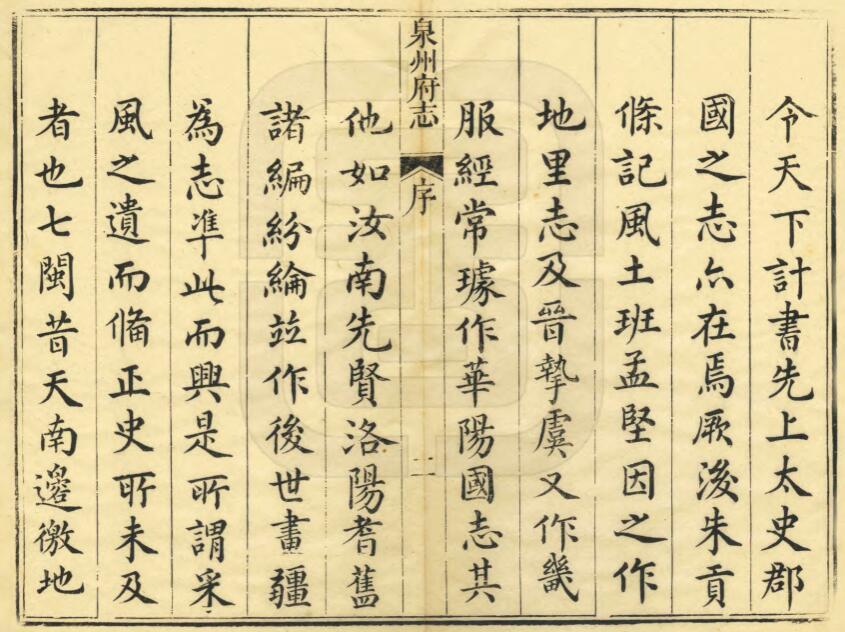 令天下計書先上太史郡
國之志亦在焉厥後朱貢
條記風土班孟堅因之作
地里志及晉摯虞又作畿
服經常璩作華陽國志其
泉州府志 序 二
他如汝南先賢洛陽耆舊
諸編紛綸竝作後世畫疆
為志準此而興是所謂采
風之遺而備正史所未及
者也七閩昔天南邊徼地